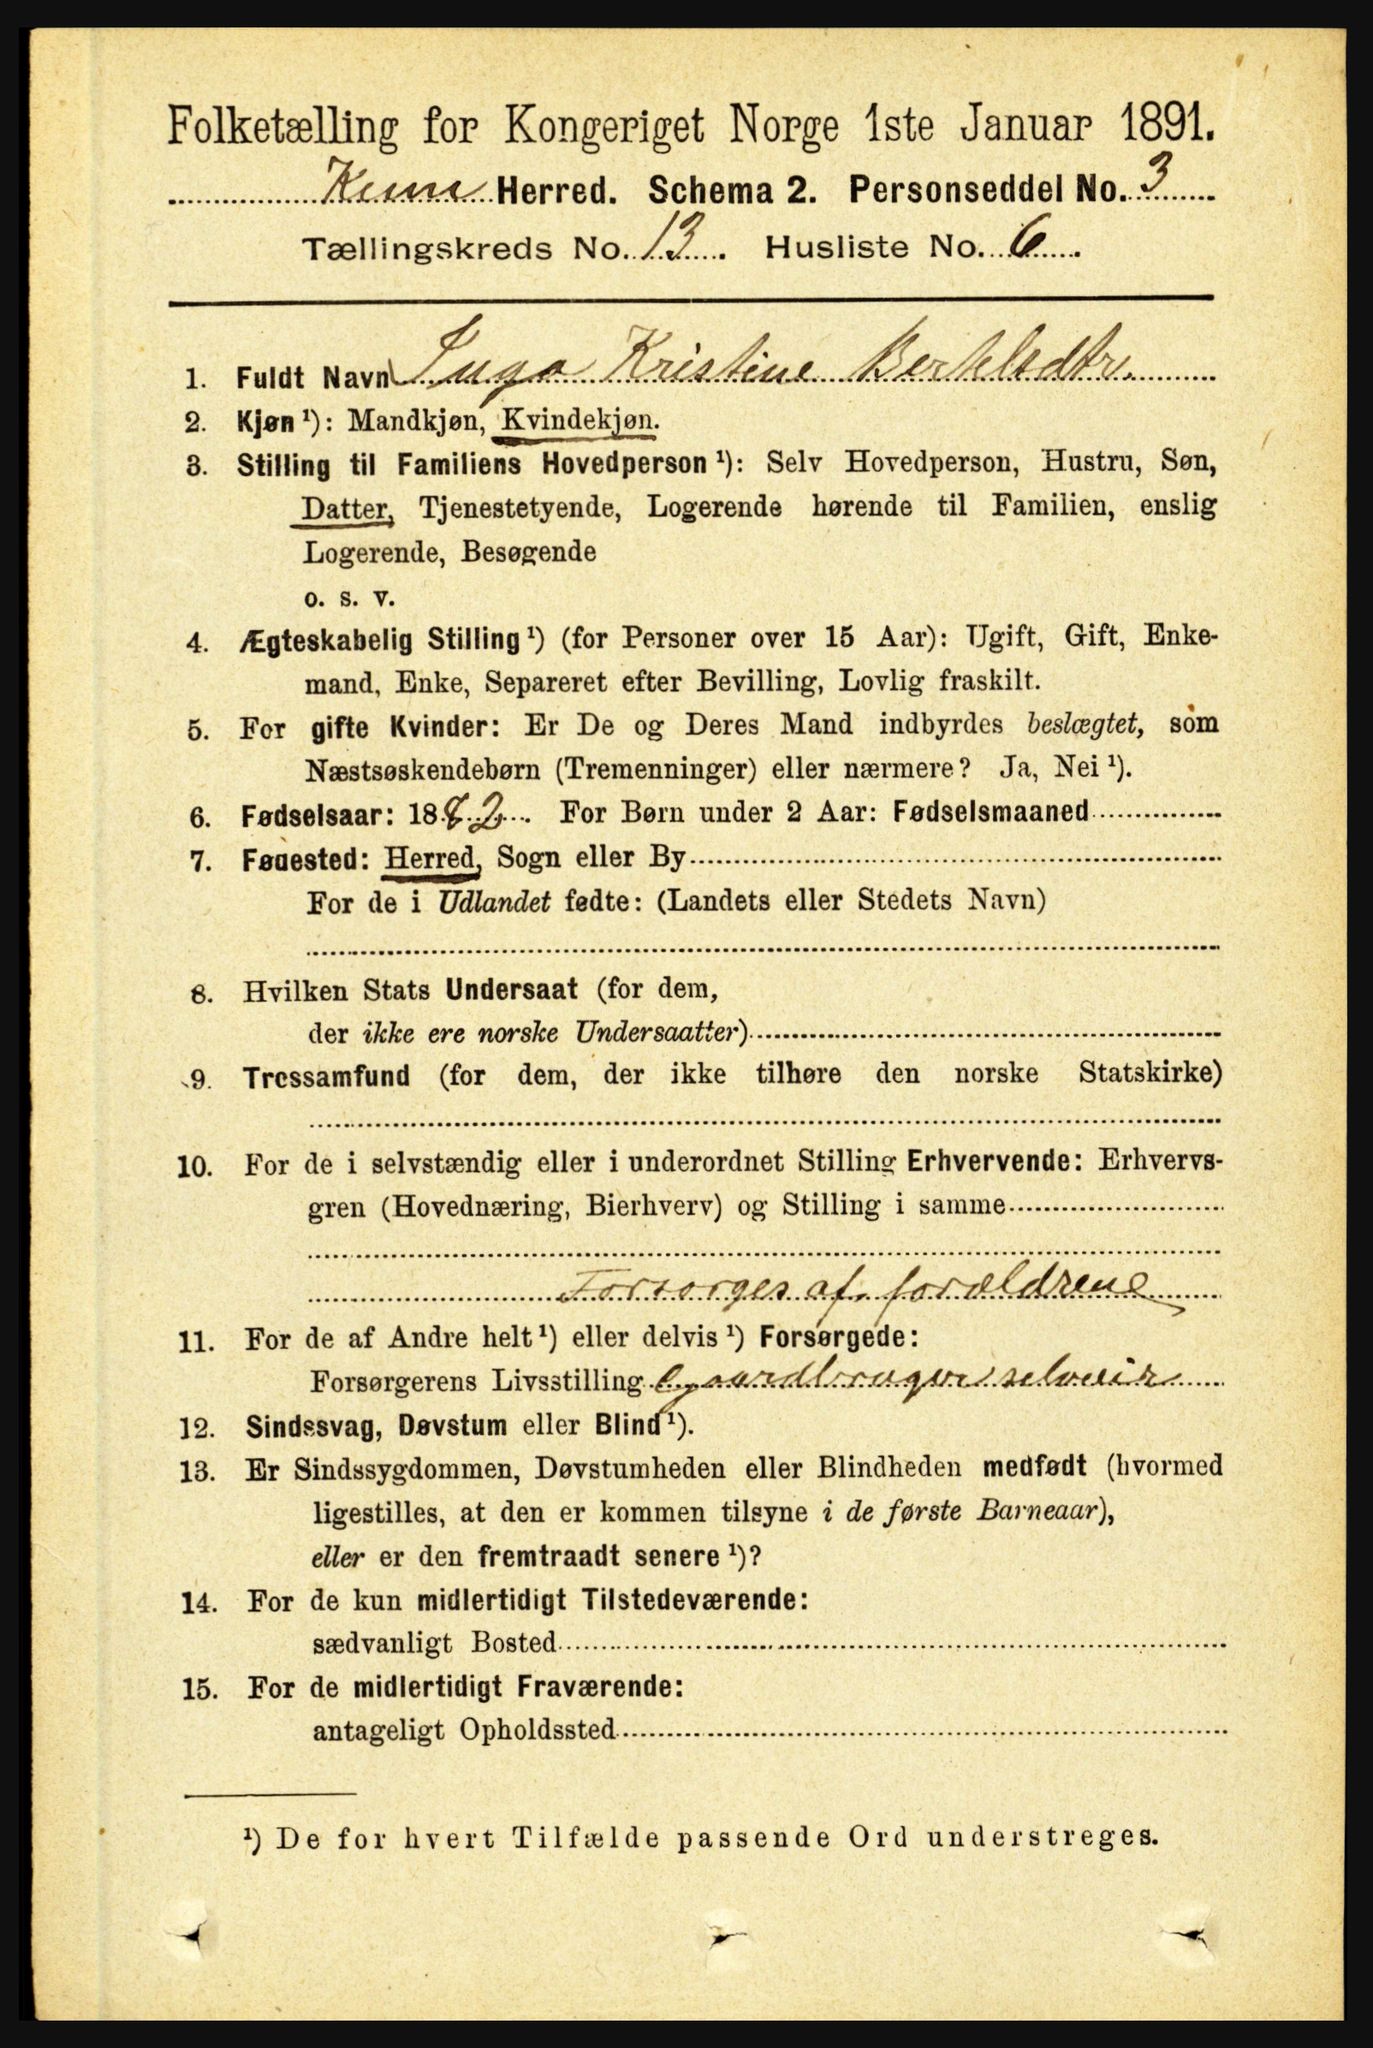 Folketælling for Kongeriget Norge 1ste Januar 1891.
Kinn Herred. Schema 2. Personseddel No. 3
Tællingskreds No. 13. Husliste No. 6.
1. Fuldt Navn Inga Kristine Bertelsdtr.
2. Kjøn ¹): Mandkjøn, Kvindekjøn.
3. Stilling til Familiens Hovedperson ¹): Selv Hovedperson, Hustru, Søn,
Datter, Tjenestetyende, Logerende hørende til Familien, enslig
Logerende, Besøgende
o. s. v.
4. Ægteskabelig Stilling ¹) (for Personer over 15 Aar): Ugift, Gift, Enke-
mand, Enke, Separeret efter Bevilling, Lovlig fraskilt.
5. For gifte Kvinder: Er De og Deres Mand indbyrdes beslægtet, som
Næstsøskendebørn (Tremenninger) eller nærmere? Ja, Nei ¹).
6. Fødselsaar: 1882. For Børn under 2 Aar: Fødselsmaaned
7. Fødested: Herred, Sogn eller By
For de i Udlandet fødte: (Landets eller Stedets Navn)
8. Hvilken Stats Undersaat (for dem,
der ikke ere norske Undersaatter)
9. Trossamfund (for dem, der ikke tilhøre den norske Statskirke)
10. For de i selvstændig eller i underordnet Stilling Erhvervende: Erhvervs-
gren (Hovednæring, Bierhverv) og Stilling i samme
Forsorges af. forældrene
11. For de af Andre helt ¹) eller delvis ¹) Forsørgede:
Forsørgerens Livsstilling Gaardbruger selveier
12. Sindssvag, Døvstum eller Blind ¹).
13. Er Sindssygdommen, Døvstumheden eller Blindheden medfødt (hvormed
ligestilles, at den er kommen tilsyne i de første Barneaar),
eller er den fremtraadt senere ¹)?
14. For de kun midlertidigt Tilstedeværende:
sædvanligt Bosted
15. For de midlertidigt Fraværende:
antageligt Opholdssted
¹) De for hvert Tilfælde passende Ord understreges.